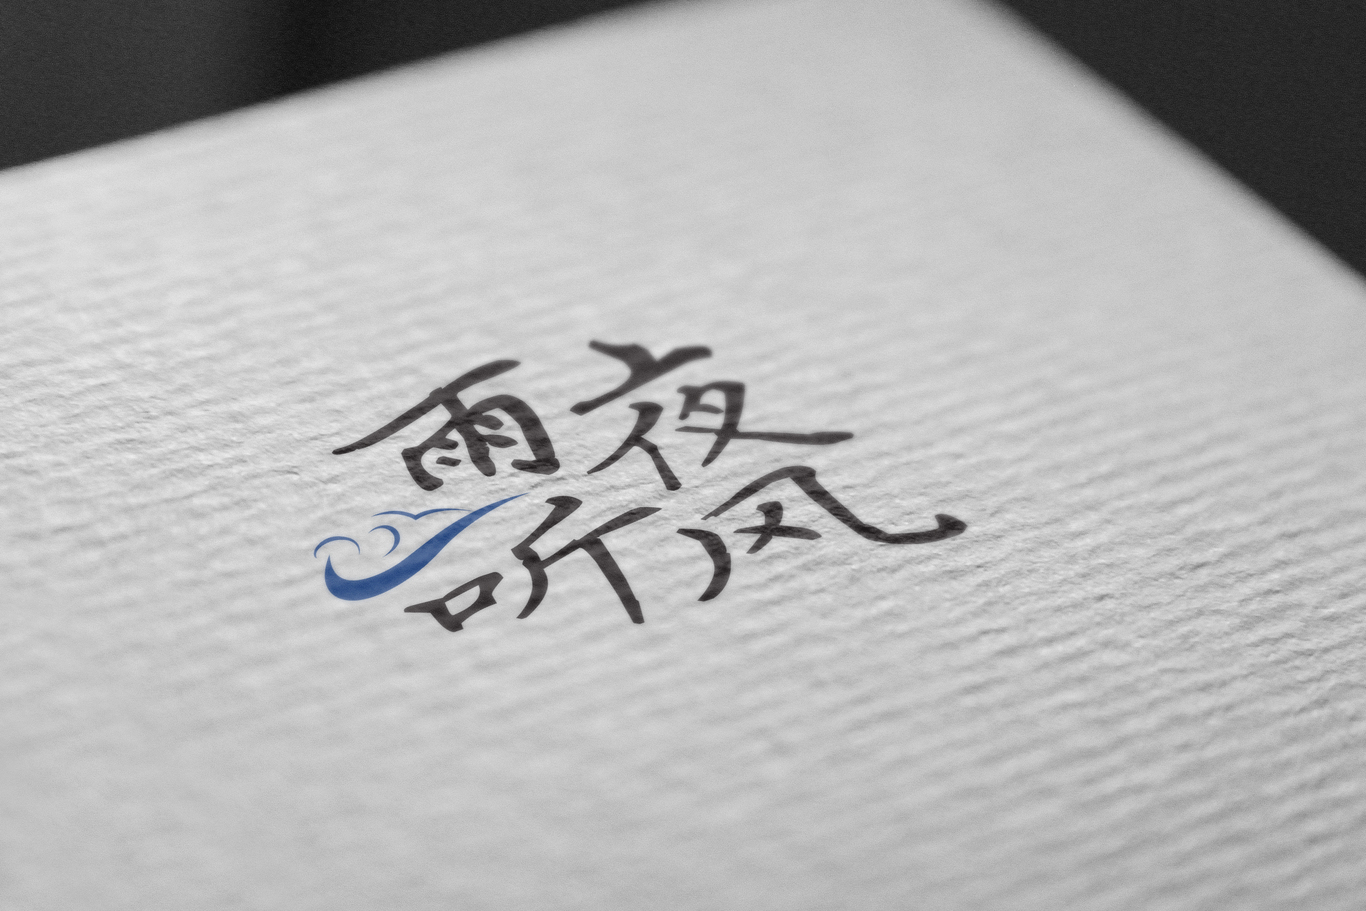 雨夜
听风